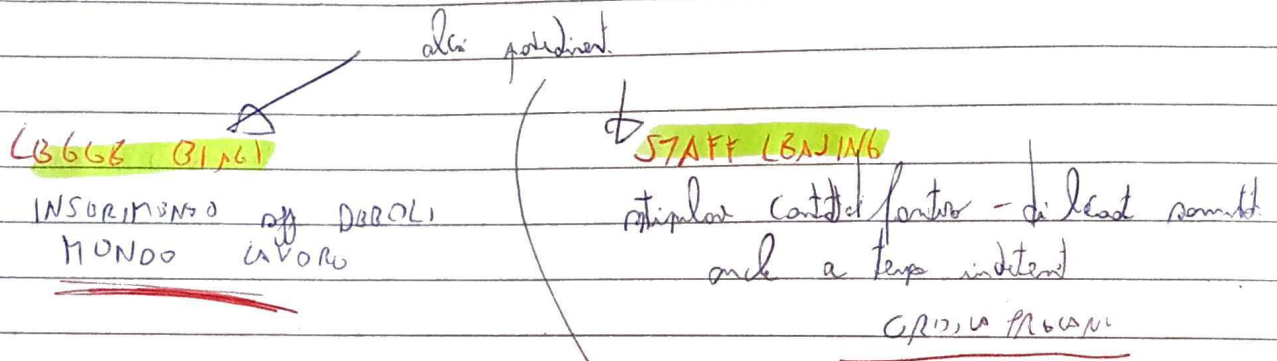 alci provvediment.
LEGGE BIAGI
INSERIMENTO sogg DEBOLI
MONDO LAVORO
STAFF LEASING
stipulare contratti fornitura - di lavoro somminist.
anche a tempo indeterm
CRITICA